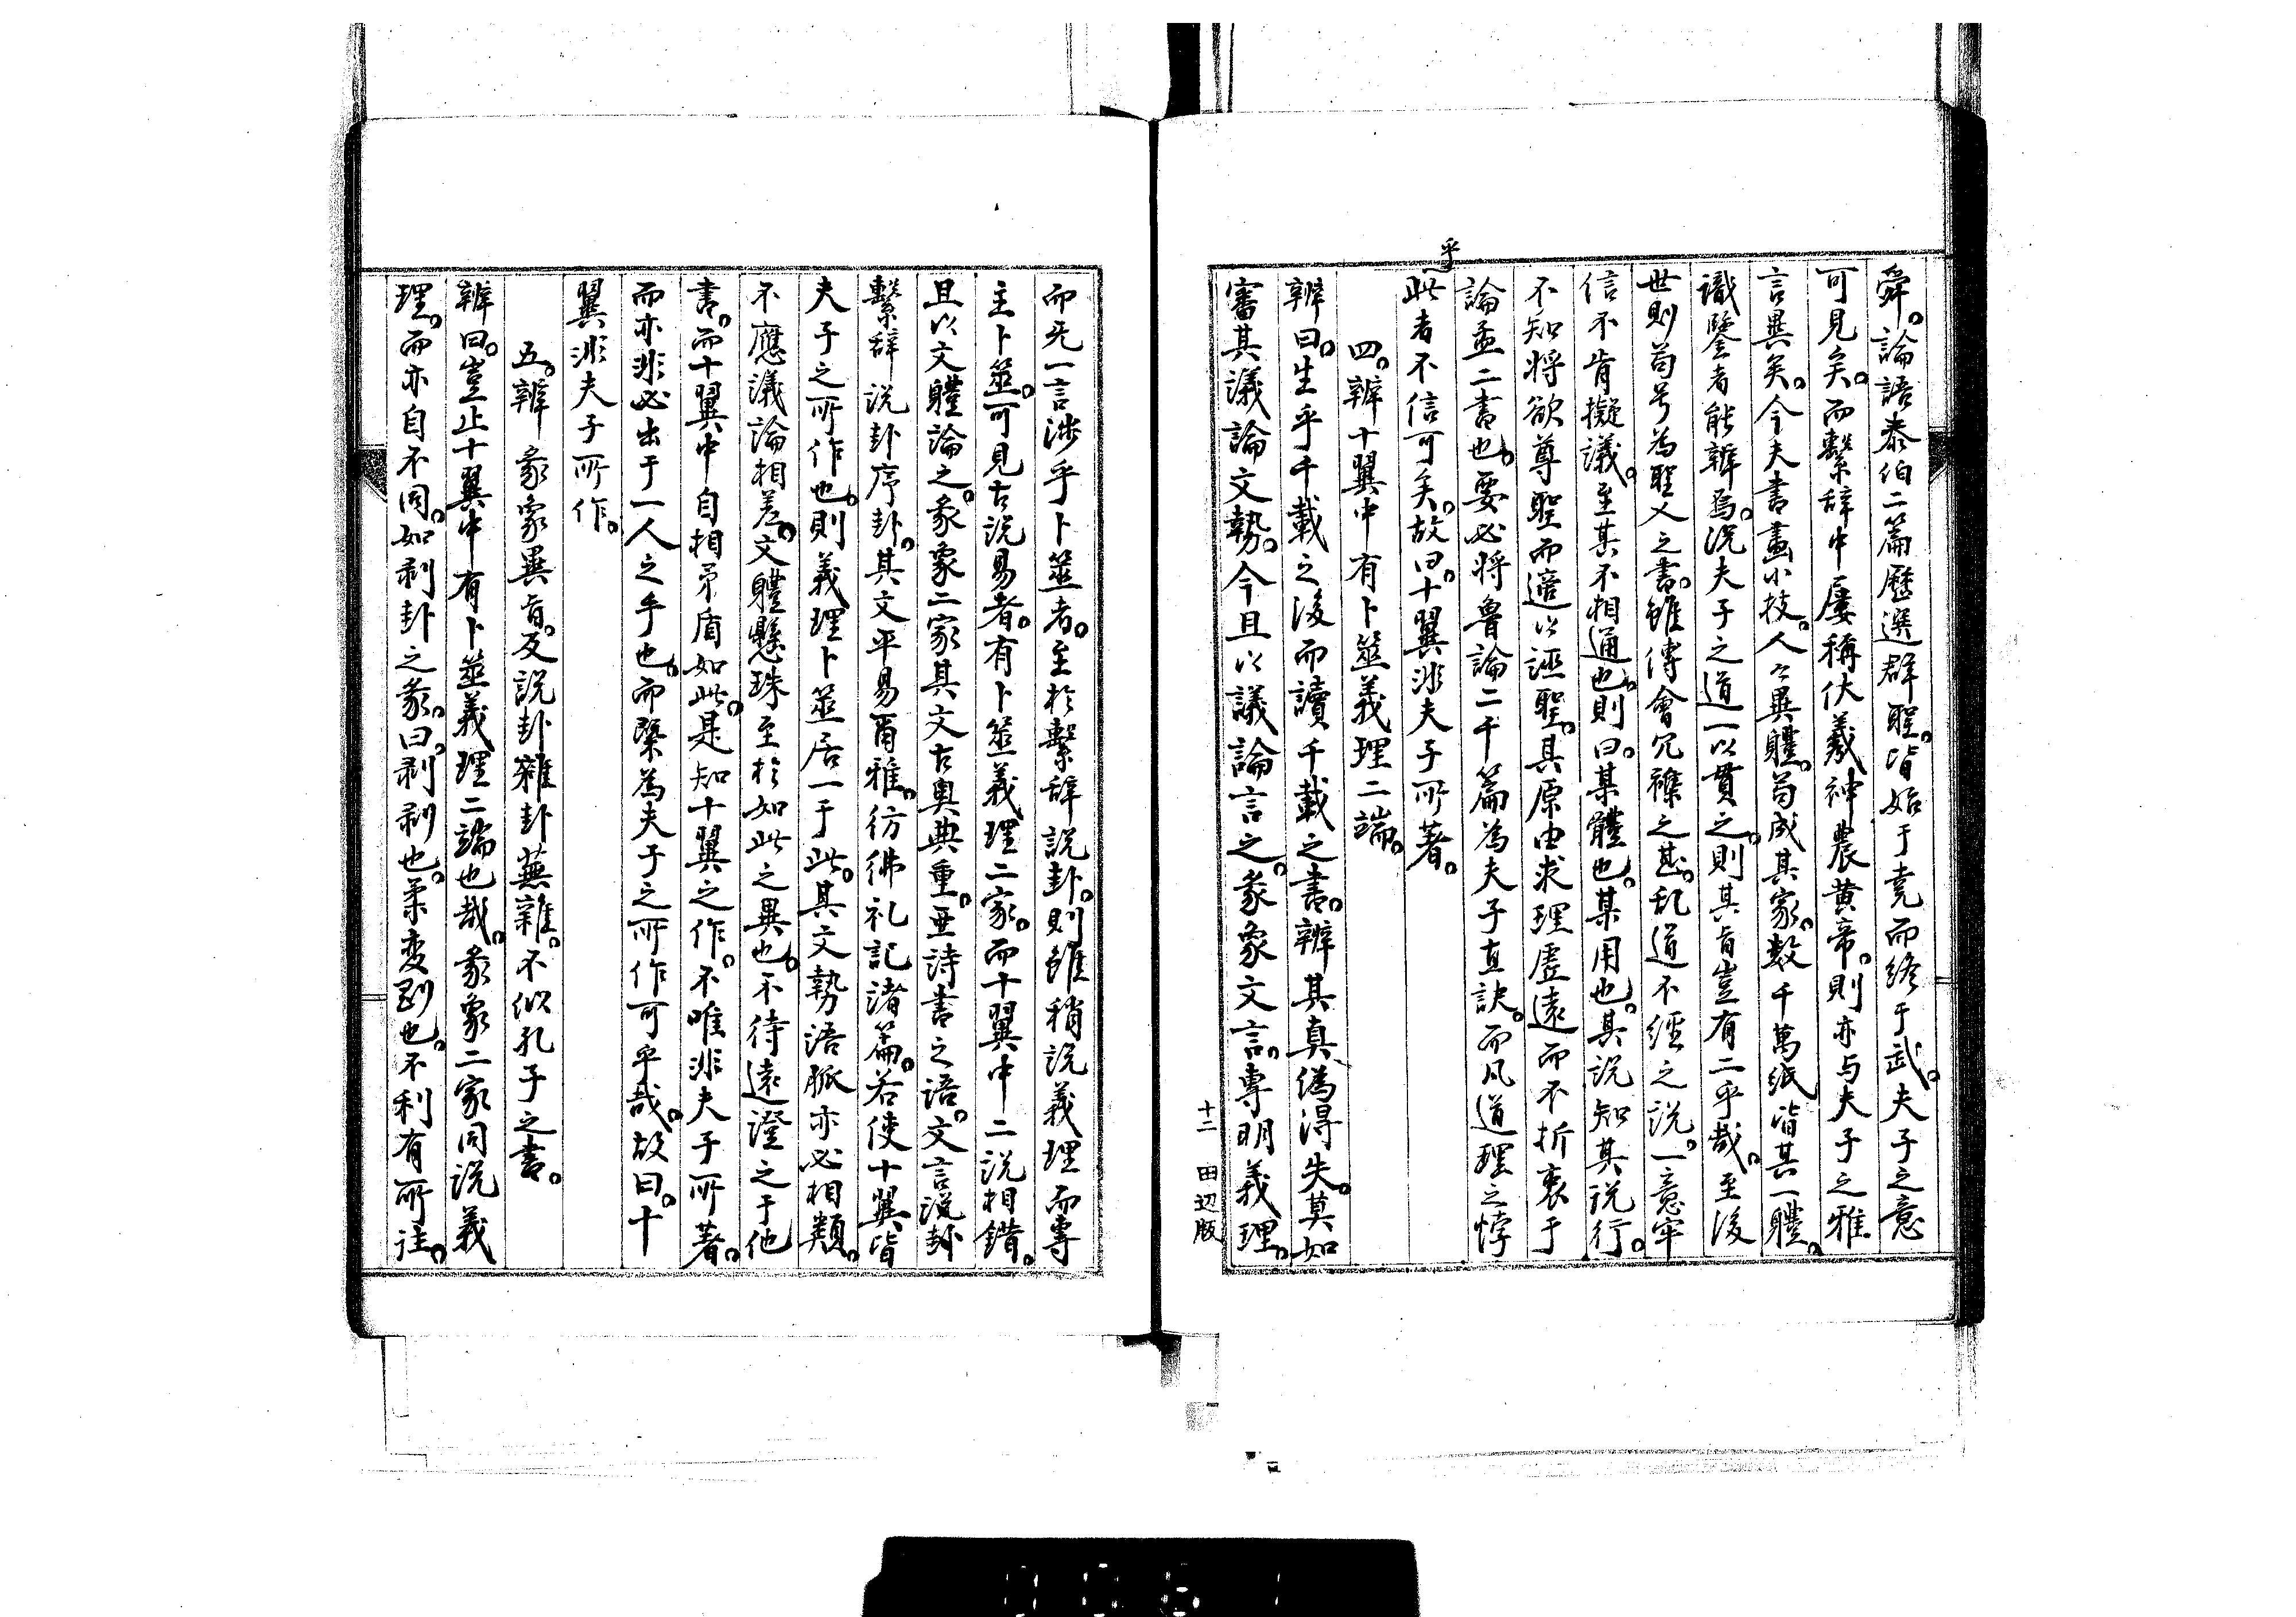 舜。論語泰伯二篇歷選群聖。皆始于堯而終于武。夫子之意
可見矣。而繫辞中屢稱伏羲神農黄帝。則亦与夫子之雅
言異矣。今夫書畫小技。人々異體。苟成其家。数千萬紙皆其一體。
識鑒者能辨焉。況夫子之道一以貫之。則其旨豈有二乎哉。至後
世則苟号為聖人之書。雖傅會冗襍之甚。乱道不經之説。一意牢
信不肯擬議。至其不相通也。則曰。某體也。某用也。其説知其説行。
不知将欲尊聖而適以誣聖。其原由求理虚遠而不折衷于
論孟二書也。要必将魯論二千篇為夫子直訣。而凡道理之悖
乎
此者不信可矣。故曰。十翼非夫子所著。
四。辨十翼中有卜筮義理二端。
辨曰。生乎千載之後而讀千載之書。辨其真偽得失。莫如
審其議論文勢。今且以議論言之。彖象文言。專明義理。
十二 田辺版
而无一言渉乎卜筮者。至於繫辞説卦。則雖稍説義理而專
主卜筮。可見古説易者。有卜筮義理二家。而十翼中二説相錯。
且以文體論之。彖象二家其文古奥典重。亜詩書之語。文言説卦
繫辞説卦序卦。其文平易爾雅。彷彿礼記諸篇。若使十翼皆
夫子之所作也。則義理卜筮居一于此。其文勢語脈亦必相類。
不應議論相差。文體懸殊至於如此之異也。不待遠證之于他
書。而十翼中自相矛盾如此。是知十翼之作。不唯非夫子所著。
而亦非必出于一人之手也。而槩為夫子之所作可乎哉。故曰。十
翼非夫子所作。
五。辨 彖象異旨。及説卦雜卦蕪雜。不似孔子之書。
辨曰。豈止十翼中有卜筮義理二端也哉。彖象二家同説義
理。而亦自不同。如剥卦之彖。曰。剥剥也。柔変剛也。不利有所往。